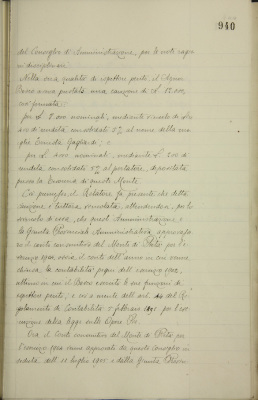 940
del Consiglio di Amministrazione, per le sorti
in disciplinare.
Nella sua qualità di aspettore perito il Signor
Bosso aveva prestato una cauzione di £ 12.000,
così formata:
per £ 8.000 nominali, mediante vincolo di
di rendita consolidato 5% al nome della
glie Ernesta Gagliardi; e
per £ 4000 nominali, mediante £ 200 di
rendita consolidato 5% al portatore, depositata
presso la Economia di questo Monte.
Ciò premesso il Relatore fa presente che detta
cauzione è tuttora vincolata, attendendosi, per lo
svincolo di essa, che quest'Amministrazione e
la Giunta Provinciale Amministrativa approvasse
ro il conto consuntivo del Monte di Pietà per l'
esercizio 1902, ossia il conto dell'anno in cui venne
chiusa la contabilità pegni dell'esercizio 1902,
ultimo in cui il Bosso esercitò le sue funzioni di
perito; e ciò a mente dell'art. del Re-
golamento di Contabilità 5 febbraio 1891 per l'ese-
cuzione della legge sulle Opere Pie.
Ora il Conto consuntivo del Monte di Pietà per
l'esercizio 1904 venne approvato da questo Consiglio in
seduta dell' 11 luglio 1905 e dalla Giunta